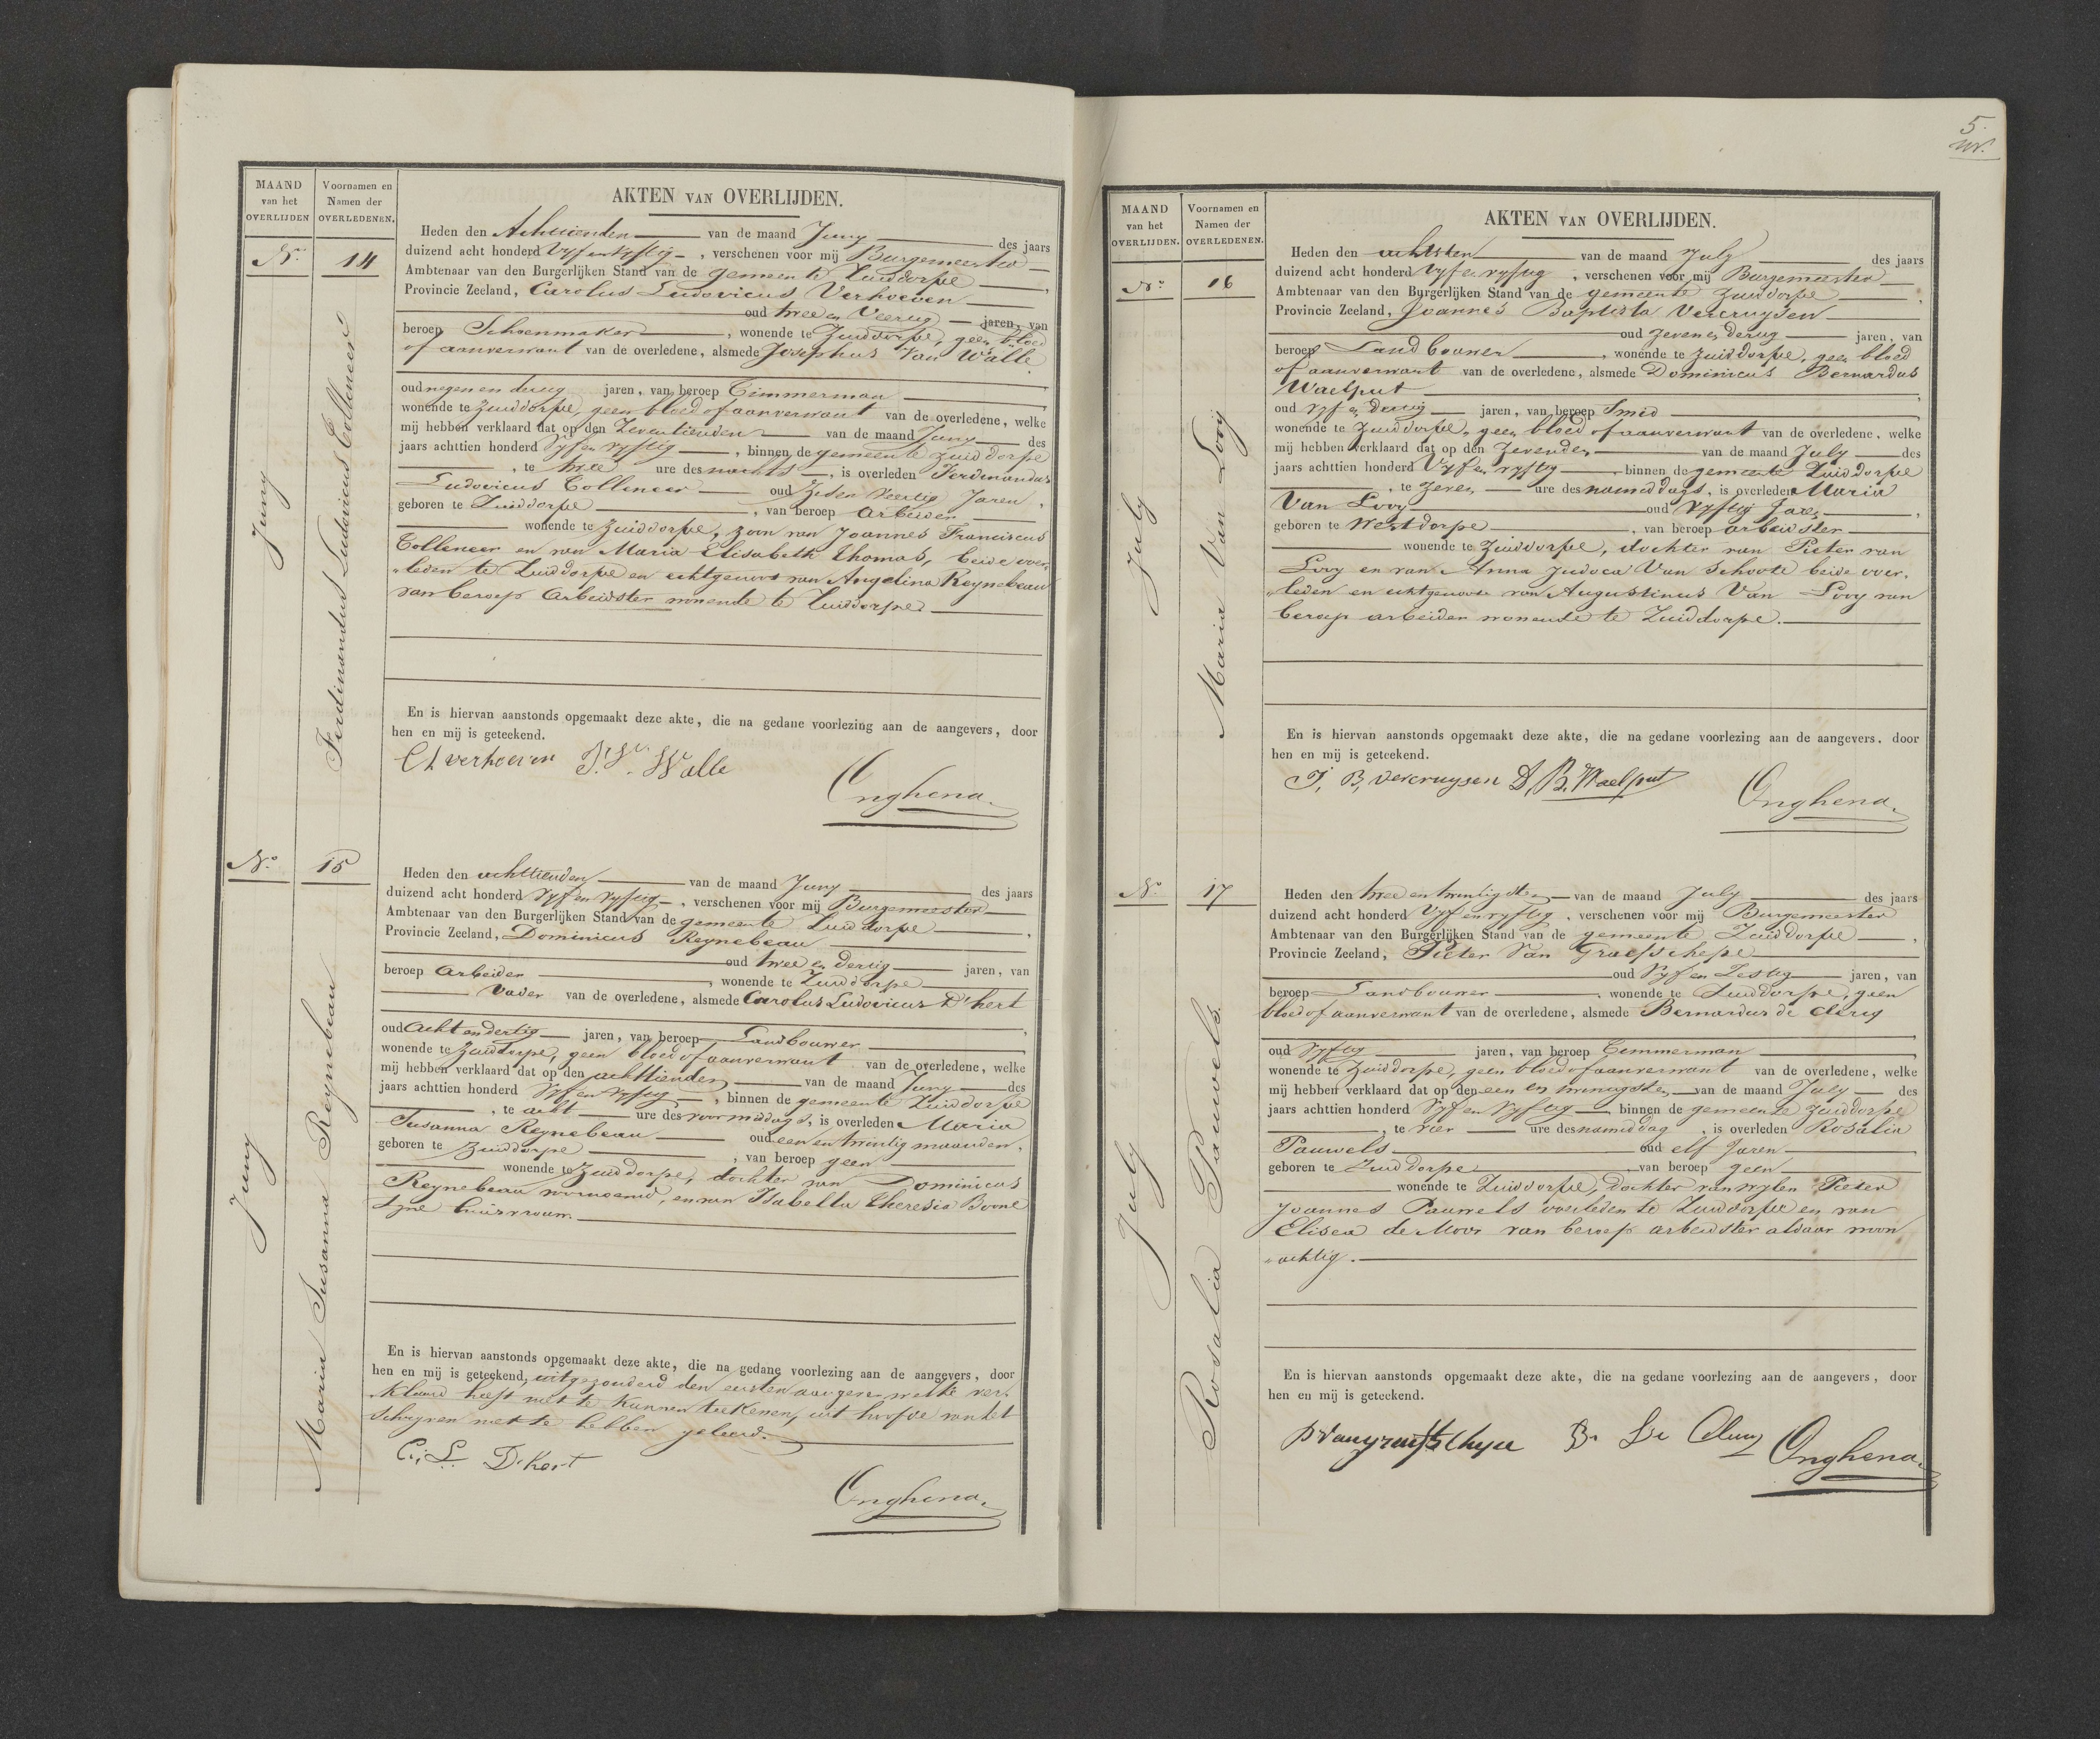 MAAND
van het
OVERLIJDEN
Voornamen en
Namen der
OVERLEDENEN.
AKTEN VAN OVERLIJDEN.
No. 14
Juny
Ferdinandus Ludovicus Colleneer
Heden den Achttienden van de maand Juny des jaars
duizend acht honderd Vyf en Vyftig, verschenen voor mij Burgemeester
Ambtenaar van den Burgerlijken Stand van de gemeente Zuiddorpe,
Provincie Zeeland, Carolus Ludovicus Verhoeven
oud twee en Veertig jaren, van
beroep Schoenmaker, wonende te Zuiddorpe, geen bloed
of aanverwant van de overledene, alsmede Josephus Van Walle,
oud negen en dertig jaren, van beroep Timmerman
wonende te Zuiddorpe, geen bloed of aanverwant van de overledene, welke
mij hebben verklaard dat op den Zeventienden van de maand Juny des
jaars achttien honderd Vyf en vyftig, binnen de gemeente Zuiddorpe
, te twee ure des nachts, is overleden Ferdinandus
Ludovicus Colleneer oud Zes en Veertig Jaren,
geboren te Zuiddorpe, van beroep Arbeider
wonende te Zuiddorpe, zoon van Joannes Franciscus
Colleneer en van Maria Elisabeth Thomas, beide over-
"leden te Zuiddorpe en echtgenoot van Angelina Reynebeau
van beroep Arbeidster wonende te Zuiddorpe
En is hiervan aanstonds opgemaakt deze akte, die na gedane voorlezing aan de aangevers, door
hen en mij is geteekend.
C L verhoeven J. V. Walle
Onghena.
No. 15
Juny
Maria Susanna Reynebeau
Heden den achttienden van de maand Juny des jaars
duizend acht honderd Vyf en vyftig, verschenen voor mij Burgemeester
Ambtenaar van den Burgerlijken Stand van de gemeente Zuiddorpe,
Provincie Zeeland, Dominicus Reynebeau
oud twee en dertig jaren, van
beroep Arbeider, wonende te Zuiddorpe
Vader van de overledene, alsmede Carolus Ludovicus D'hert
oud Acht en dertig jaren, van beroep Landbouwer,
wonende te Zuiddorpe, geen bloed of aanverwant van de overledene, welke
mij hebben verklaard dat op den achttienden van de maand Juny des
jaars achttien honderd Vyf en vyftig, binnen de gemeente Zuiddorpe
, te acht ure des voormiddags, is overleden Maria
Susanna Reynebeau oud een en twintig maanden,
geboren te Zuiddorpe, van beroep geen
wonende te Zuiddorpe, dochter van Dominicus
Reynebeau voornoemd, en van Isabella Theresia Boone
zyne huisvrouw.
En is hiervan aanstonds opgemaakt deze akte, die na gedane voorlezing aan de aangevers, door
hen en mij is geteekend, uitgezonderd den eersten aangever welke ver-
klaard heeft niet te kunnen teekenen, uit hoofde van het
schryven niet te hebben geleerd.
C. L. D'hert
Onghena.
5.
MAAND
van het
OVERLIJDEN.
Voornamen en
Namen der
OVERLEDENEN.
AKTEN VAN OVERLIJDEN.
No. 16
July
Maria Van Looy
Heden den achtsten van de maand July des jaars
duizend acht honderd Vyf en vyftig, verschenen voor mij Burgemeester
Ambtenaar van den Burgerlijken Stand van de gemeente Zuiddorpe,
Provincie Zeeland, Joannes Baptista Vercruysen
oud Zeven en dertig jaren, van
beroep Landbouwer, wonende te Zuiddorpe, geen bloed
of aanverwant van de overledene, alsmede Dominicus Bernardus
Waelput,
oud vyf en dertig jaren, van beroep Smid
wonende te Zuiddorpe, geen bloed of aanverwant van de overledene, welke
mij hebben verklaard dat op den Zevenden van de maand July des
jaars achttien honderd Vyf en vyftig, binnen de gemeente Zuiddorpe
, te zeven ure des namiddags, is overleden Maria
Van Looy oud vyftig Jaren,
geboren te Westdorpe, van beroep arbeidster
wonende te Zuiddorpe, dochter van Pieter van
Looy en van Anna Judoca Van Schoote beide over-
"leden en echtgenoote van Augustinus Van Looy van
beroep arbeider wonende te Zuiddorpe.
En is hiervan aanstonds opgemaakt deze akte, die na gedane voorlezing aan de aangevers. door
hen en mij is geteekend.
J, B, vercruysen D, B, Waelput
Onghena.
No. 17
July
Rosalia Pauwels.
Heden den twee en twintigsten van de maand July des jaars
duizend acht honderd Vyf en vyftig, verschenen voor mij Burgemeester
Ambtenaar van den Burgerlijken Stand van de gemeente Zuiddorpe,
Provincie Zeeland, Pieter Van Graefschepe
oud Vyf en Zestig jaren, van
beroep Landbouwer, wonende te Zuiddorpe, geen
bloed of aanverwant van de overledene, alsmede Bernardus de Clercq
oud Vyftig jaren, van beroep Timmerman,
wonende te Zuiddorpe, geen bloed of aanverwant van de overledene, welke
mij hebben verklaard dat op den een en twintigsten van de maand July des
jaars achttien honderd Vyf en Vyftig binnen de gemeente Zuiddorpe
, te vier ure des namiddag, is overleden Rosalia
Pauwels oud elf Jaren,
geboren te Zuiddorpe, van beroep geen
wonende te Zuiddorpe, dochter van wylen Pieter
Joannes Pauwels overleden te Zuiddorpe en van
Elisea de Moor van beroep arbeidster aldaar woon
"achtig.
En is hiervan aanstonds opgemaakt deze akte, die na gedane voorlezing aan de aangevers, door
hen en mij is geteekend.
B. De Clercq
Onghena.